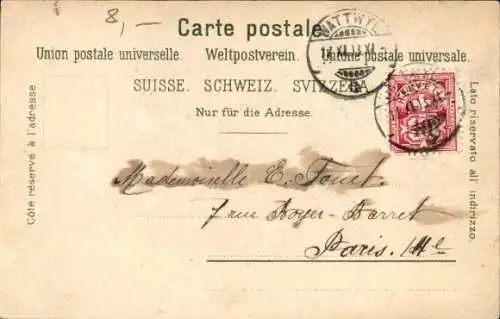 8,—
Carte postale.
WATTWYL
Union postale universelle. Weltpostverein. Unione postale universale.
SUISSE. SCHWEIZ. SVIZZERA.
Nur für die Adresse.
Côté réservé à l'adresse
Lato riservato all' indirizzo.
Mademoiselle E. Touet
7 rue Boyer-Barret
Paris. 14e